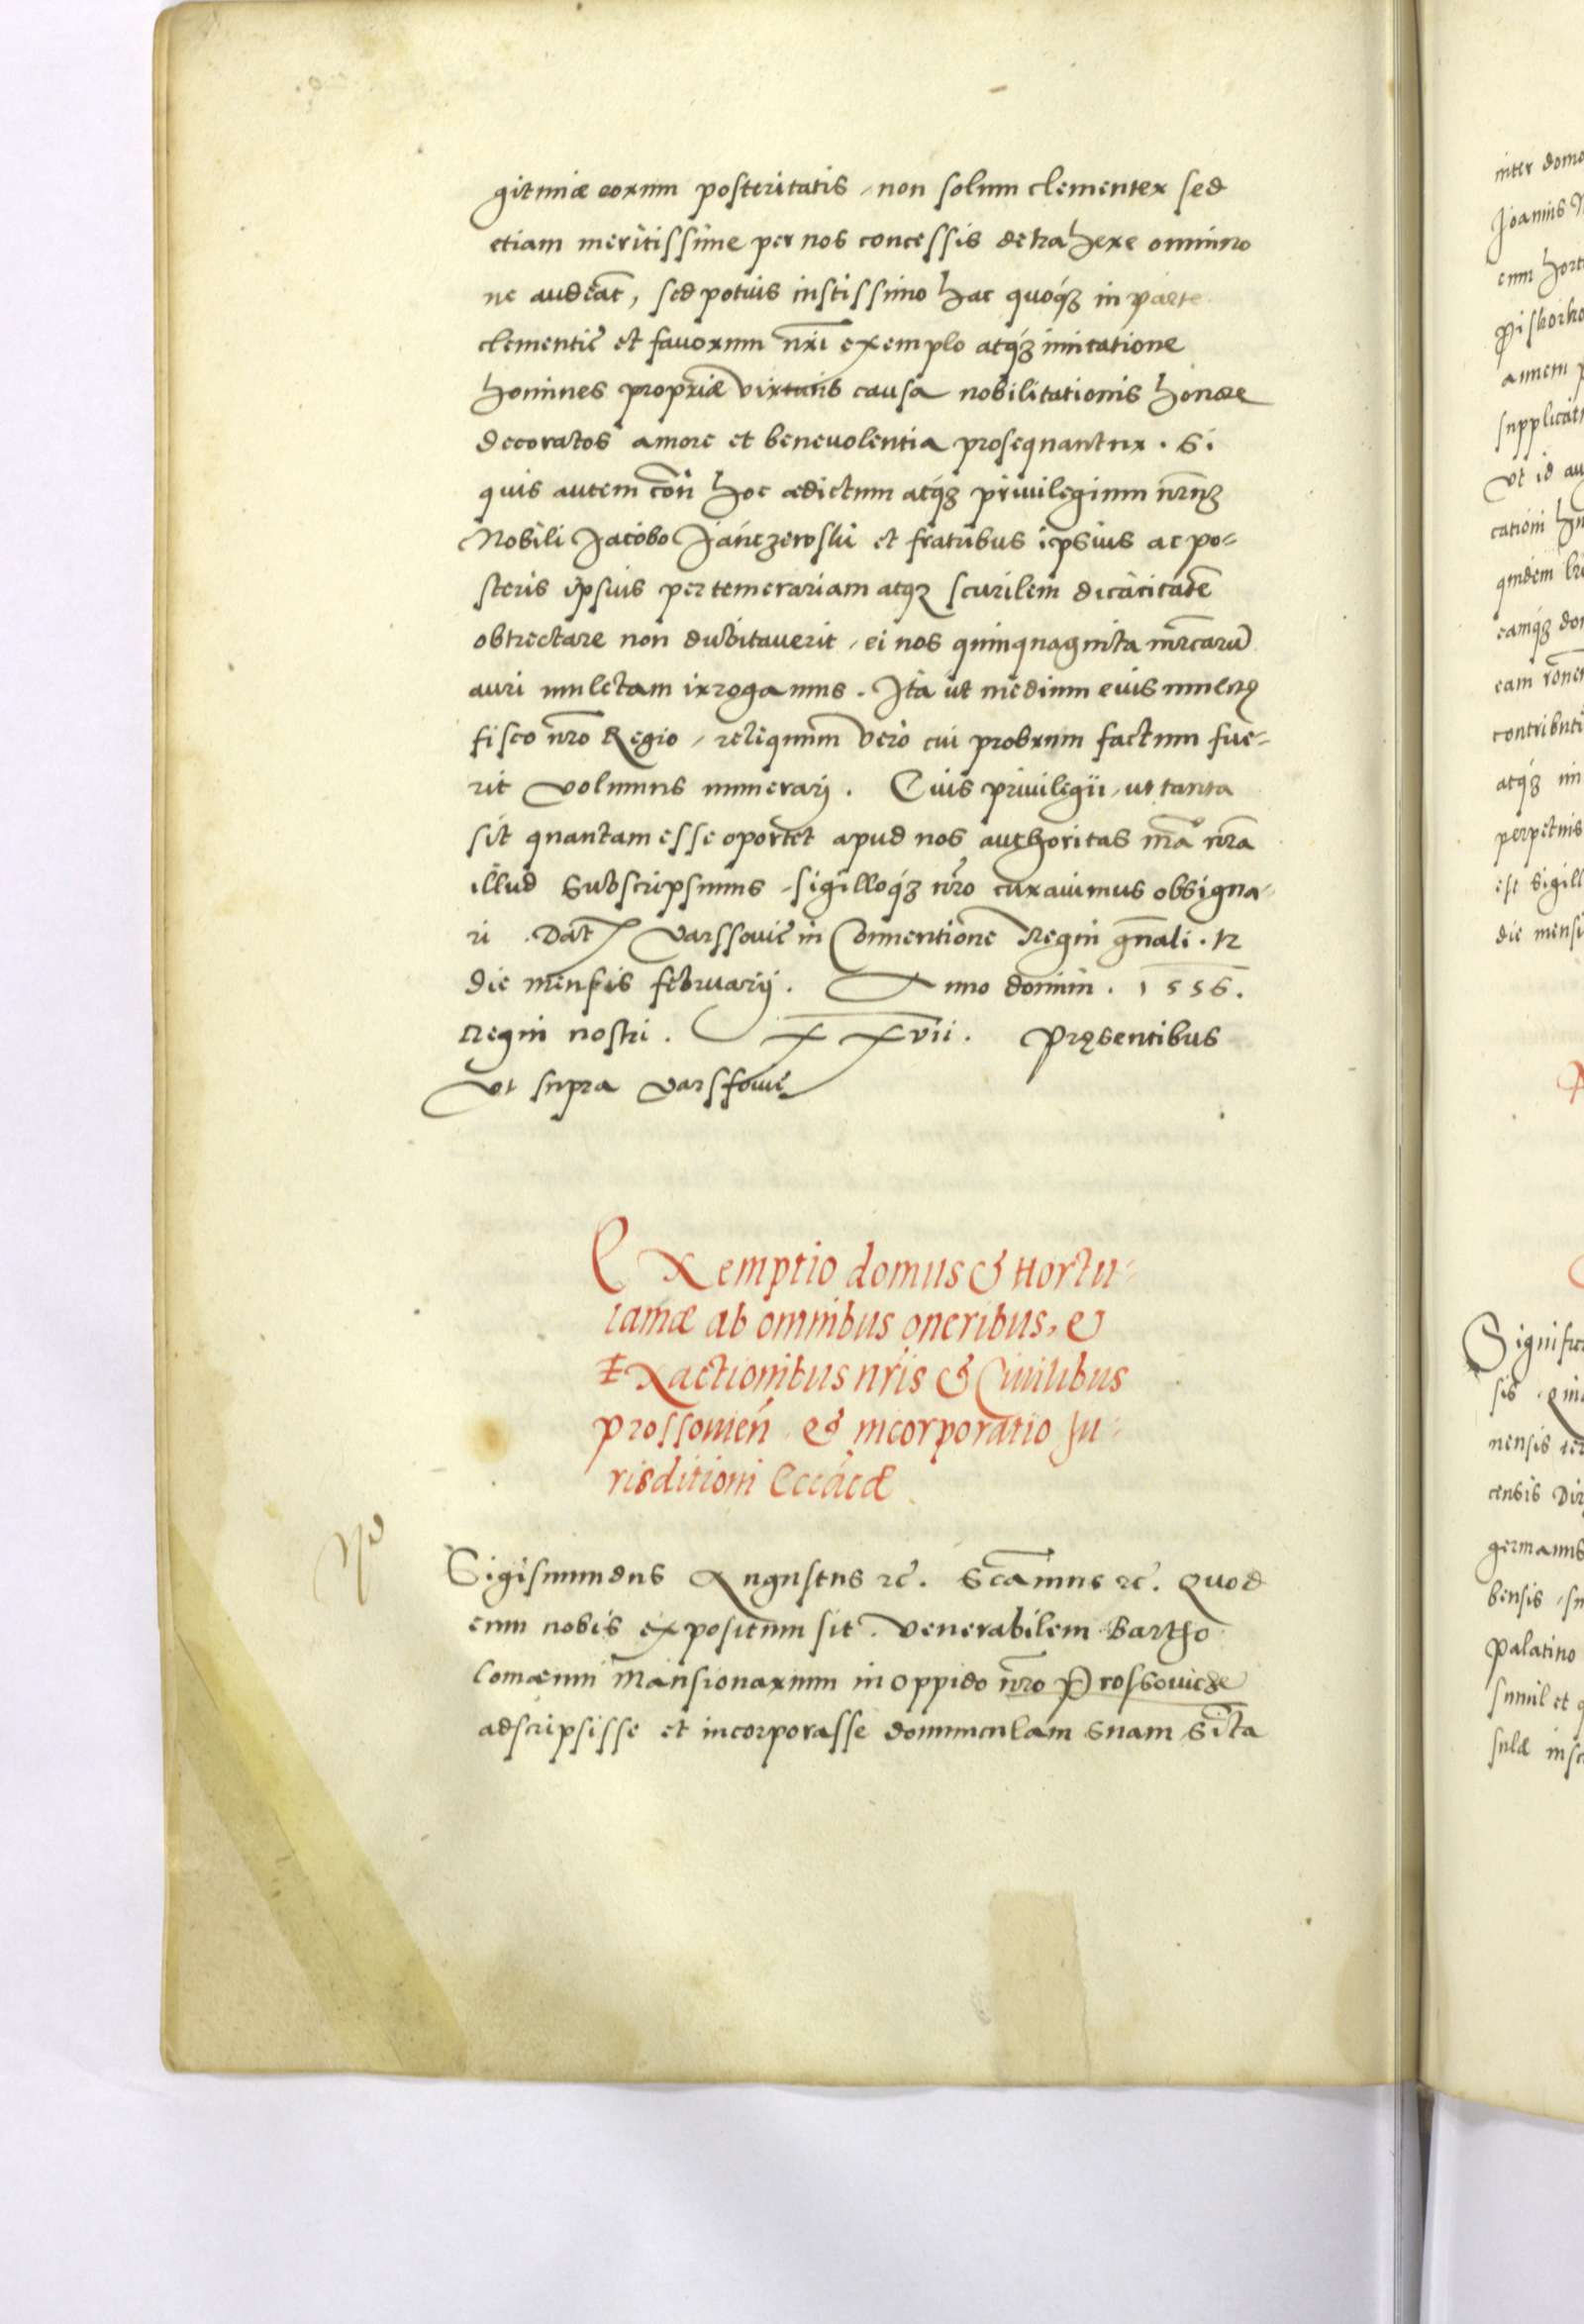 gitimæ eorum posteritatis, non solum clementer sed
etiam meritissime per nos concessis detrahere omnino
ne audeāt, sed potius iustissimo hac quoq́ȝ in parte
clementię et fauorum nr̄i exemplo atq́ȝ imitatione
homines propriæ virtutis causa nobilitationis honore
decoratos amore et beneuolentia prosequantur. Si
quis autem con̄ hoc ædictum atq́ȝ priuilegium nr̄mȝ
Nobili Jacobo Janczewski et fratribus ipsius ac po=
steris ipsius per temerariam atqȝ scurilem dicacitatē
obtrectare non dubitauerit, ei nos quinquaginta mr̄carū
auri mulctam irrogamus. Ita ut medium eius mulctę
fisco nr̄o Regio, reliquum vero cui probrum factum fue=
rit volumus numerarj. Cuius priuilegii, ut tanta
sit quantam esse oportet apud nos authoritas m̄a nr̄a
illud subscripsimus, sigilloq́ȝ nr̄o curauimus obsigna-
ri. Dat̄ Varssouię in Conuentione Regni gn̄ali. 12
die mensis februarij. Anno domini. 1556.
Regni nostri. XXvii. Pręsentibus
Vt supra Varssouię
Exemptio domus & Hortu=
lanæ ab omnibus oneribus, &
Exactionibus nr̄is & Ciuilibus
prossouień & incorporatio Ju=
risditioni Eccācæ
Sigismundus Augustus ꝛc̄. Scāmus ꝛc̄. Quod
cum nobis expositum sit. Venerabilem Bartho
lomæum Mansionarium in oppido nr̄o Prossouicze
adscripsisse et incorporasse domunculam suam sīta
inter domo
Joannis
cum hort
Piskorko
annem
supplicati
Vt id au
cationi hu
quidem
eamq́ȝ do
eam
contributi
atq́ȝ im
perpetuis
est Sigill
die mensi
Signific
sis
nensis
censis
germanus
bensis
Palatino
simul et
sulæ